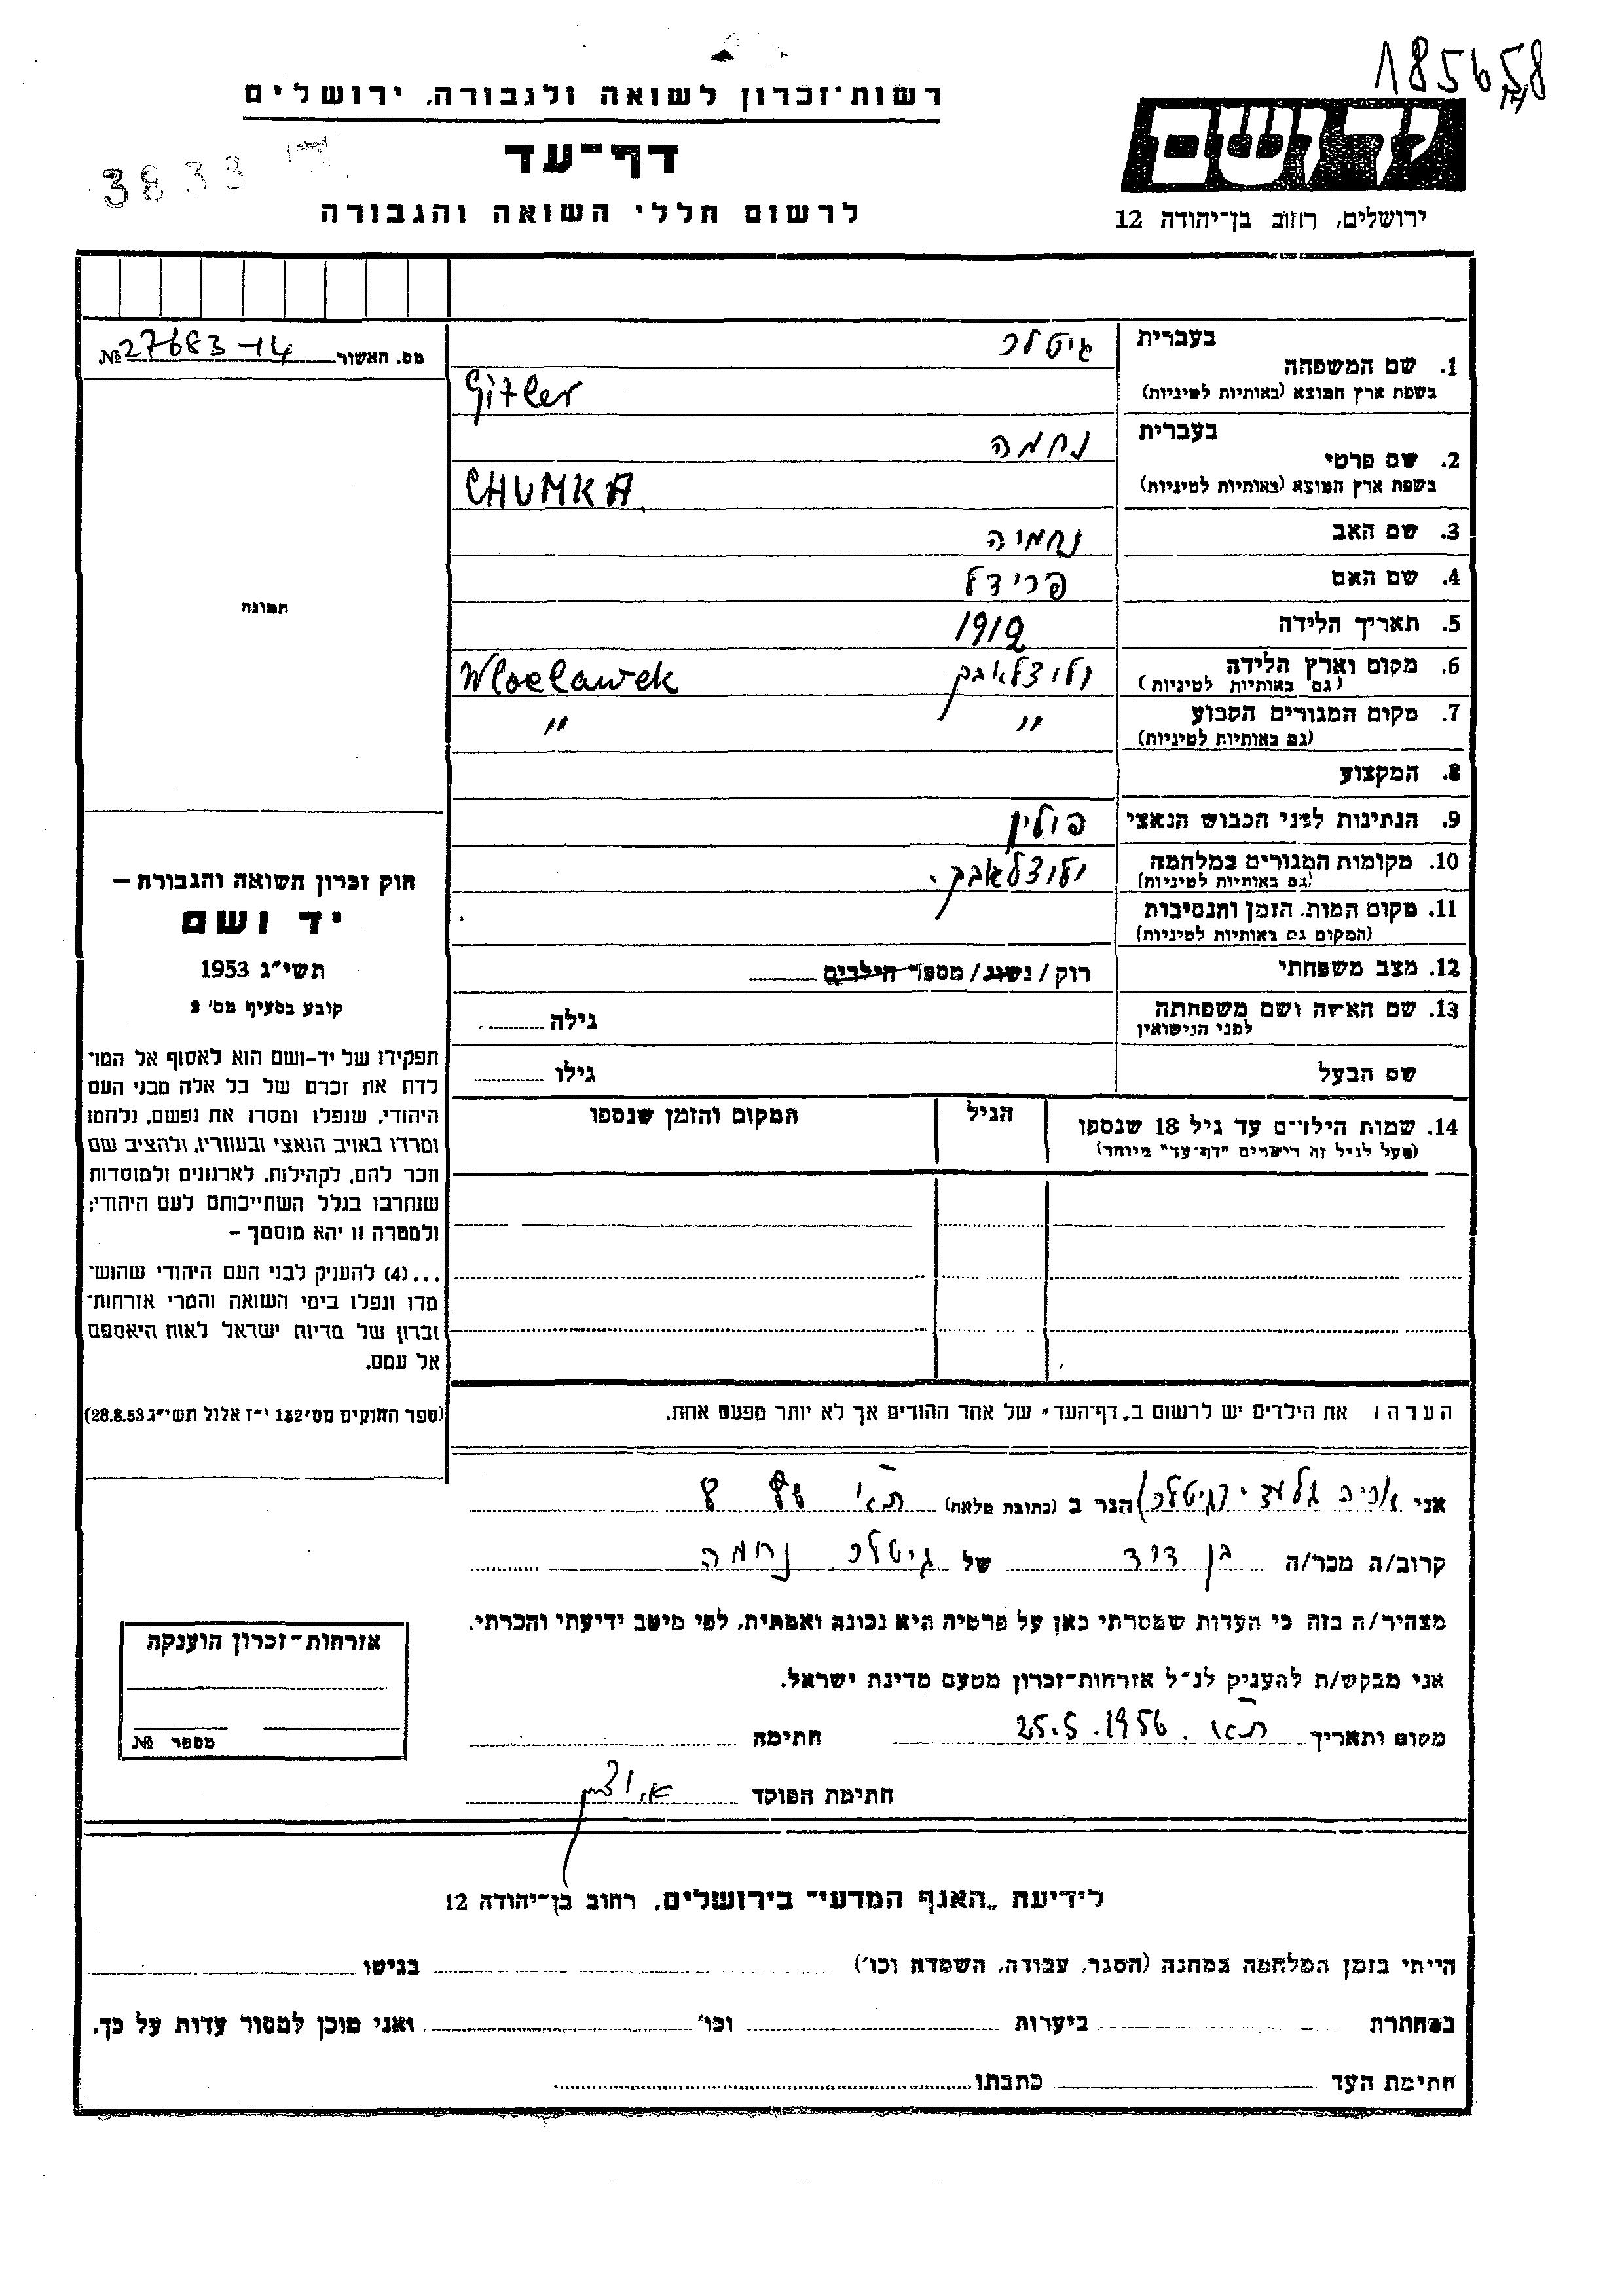 185658
רשות־זכרון לשואה ולגבורה, ירושלים
דף־עד
לרשום חללי השואה והגבורה
3833
יד ושם
ירושלים, רחוב בן־יהודה 12
מס. האשור № 27683-14
בעברית גיטלר
1. שם המשפחה
בשפת ארץ המוצא (באותיות לטיניות) Gitler
בעברית נחמה
2. שם פרטי
בשפת ארץ המוצא (באותיות לטיניות) CHUMKA
3. שם האב נחמיה
4. שם האם פרידל
5. תאריך הלידה 1912
6. מקום וארץ הלידה ולוצלאבק Wloclawek
(גם באותיות לטיניות)
7. מקום המגורים הקבוע " "
(גם באותיות לטיניות)
8. המקצוע
9. הנתינות לפני הכבוש הנאצי פולין
10. מקומות המגורים במלחמה ולוצלאבק.
(גם באותיות לטיניות)
11. מקום המות, הזמן והנסיבות
(המקום גם באותיות לטיניות)
12. מצב משפחתי רוק/נשוי/מספר הילדים
13. שם האשה ושם משפחתה גילה
לפני הנישואין
שם הבעל גילו
14. שמות הילדים עד גיל 18 שנספו הגיל המקום והזמן שנספו
(מעל לגיל זה רושמים "דף־עד" מיוחד)
תמונה
חוק זכרון השואה והגבורה –
יד ושם
תשי"ג 1953
קובע בסעיף מס' 2
תפקידו של יד-ושם הוא לאסוף אל המו־
לדת את זכרם של כל אלה מבני העם
היהודי, שנפלו ומסרו את נפשם, נלחמו
ומרדו באויב הנאצי ובעוזריו, ולהציב שם
וזכר להם, לקהילות, לארגונים ולמוסדות
שנחרבו בגלל השתייכותם לעם היהודי;
ולמטרה זו יהא מוסמך –
...(4) להעניק לבני העם היהודי שהוש־
מדו ונפלו בימי השואה והמרי אזרחות־
זכרון של מדינת ישראל לאות היאספם
אל עמם.
(ספר החוקים מס' 132 י"ז אלול תשי"ג 28.8.53)
הערה: את הילדים יש לרשום ב„דף־העד" של אחד ההורים אך לא יותר מפעם אחת.
אני גלעד - (גיטלר) הגר ב (כתובת מלאה) ת"א 8
קרוב/ה מכר/ה בן דוד של גיטלר נחמה
מצהיר/ה בזה כי העדות שמסרתי כאן על פרטיה היא נכונה ואמתית, לפי מיטב ידיעתי והכרתי.
אני מבקש/ת להעניק לנ"ל אזרחות־זכרון מטעם מדינת ישראל.
מקום ותאריך ת"א. 25.5.1956 חתימה
חתימת הפוקד
אזרחות־זכרון הוענקה
מספר №
לידיעת „האגף המדעי" בירושלים, רחוב בן־יהודה 12
הייתי בזמן המלחמה במחנה (הסגר, עבודה, השמדה וכו') בגיטו
במחתרת ביערות וכו' ואני מוכן למסור עדות על כך.
חתימת העד כתבתו